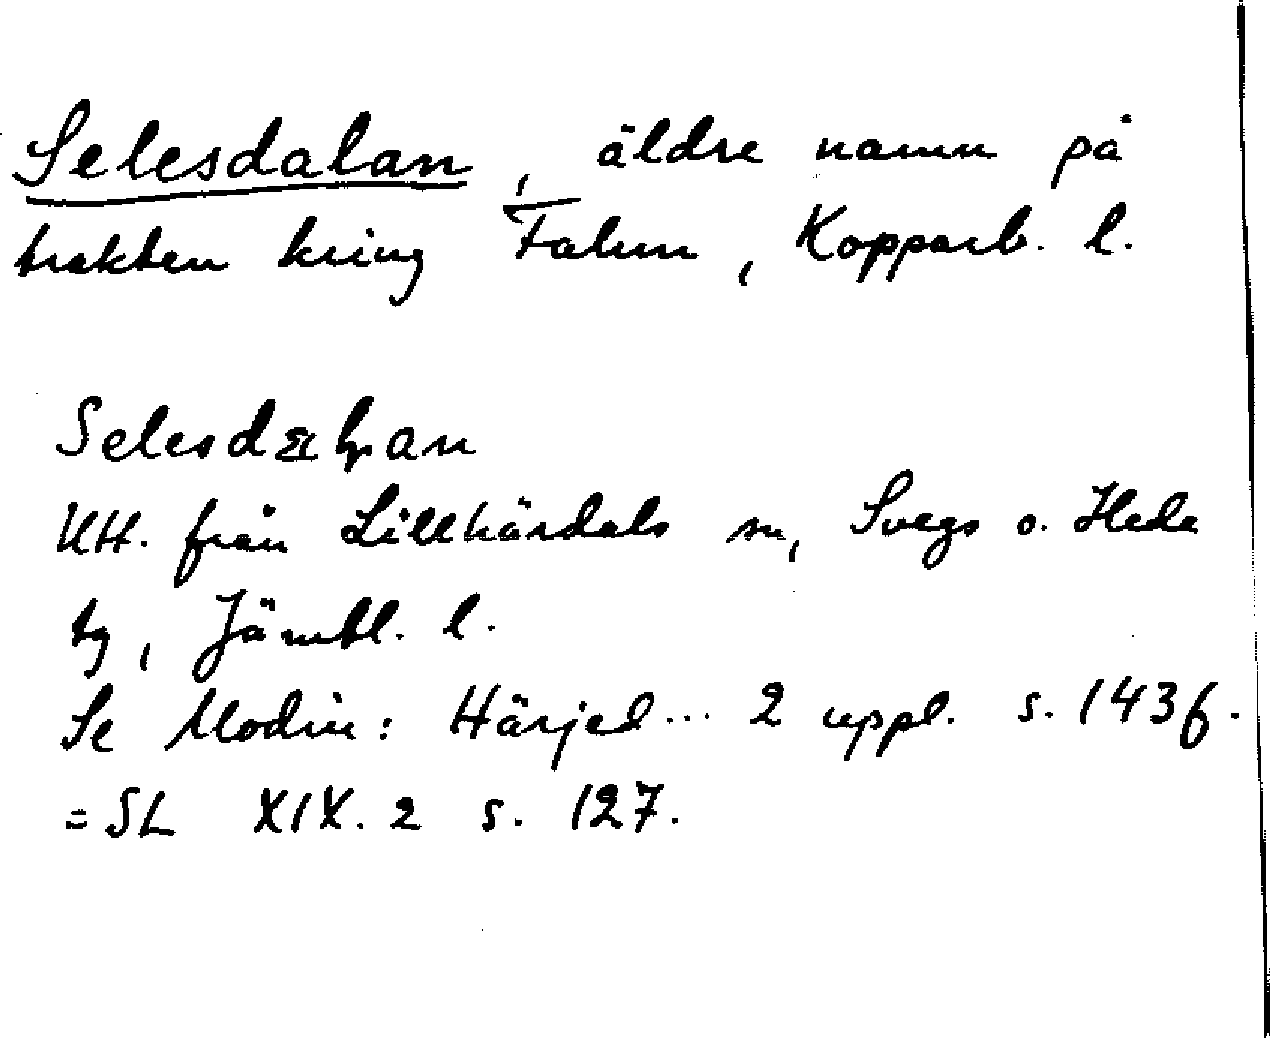 Selesdalan, äldre namn på
trakten kring Falun, Kopparb. l.
Selesdalan
UH. från Lillhärdals sn, Svegs o. Hede
tg, Jämtl. l.
Se Modin: Härjed... 2 uppl. s. 143 f.
= SL XIX. 2 s. 127.